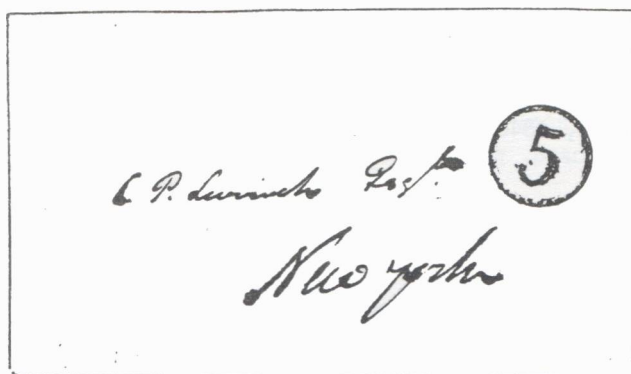 C P. Leverich Esqr. 5
New york